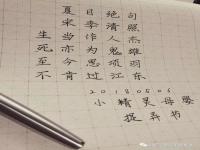 夏日绝句
宋 李清照
生当作人杰
死亦为鬼雄
至今思项羽
不肯过江东
20180806
小精灵母婴
弄书